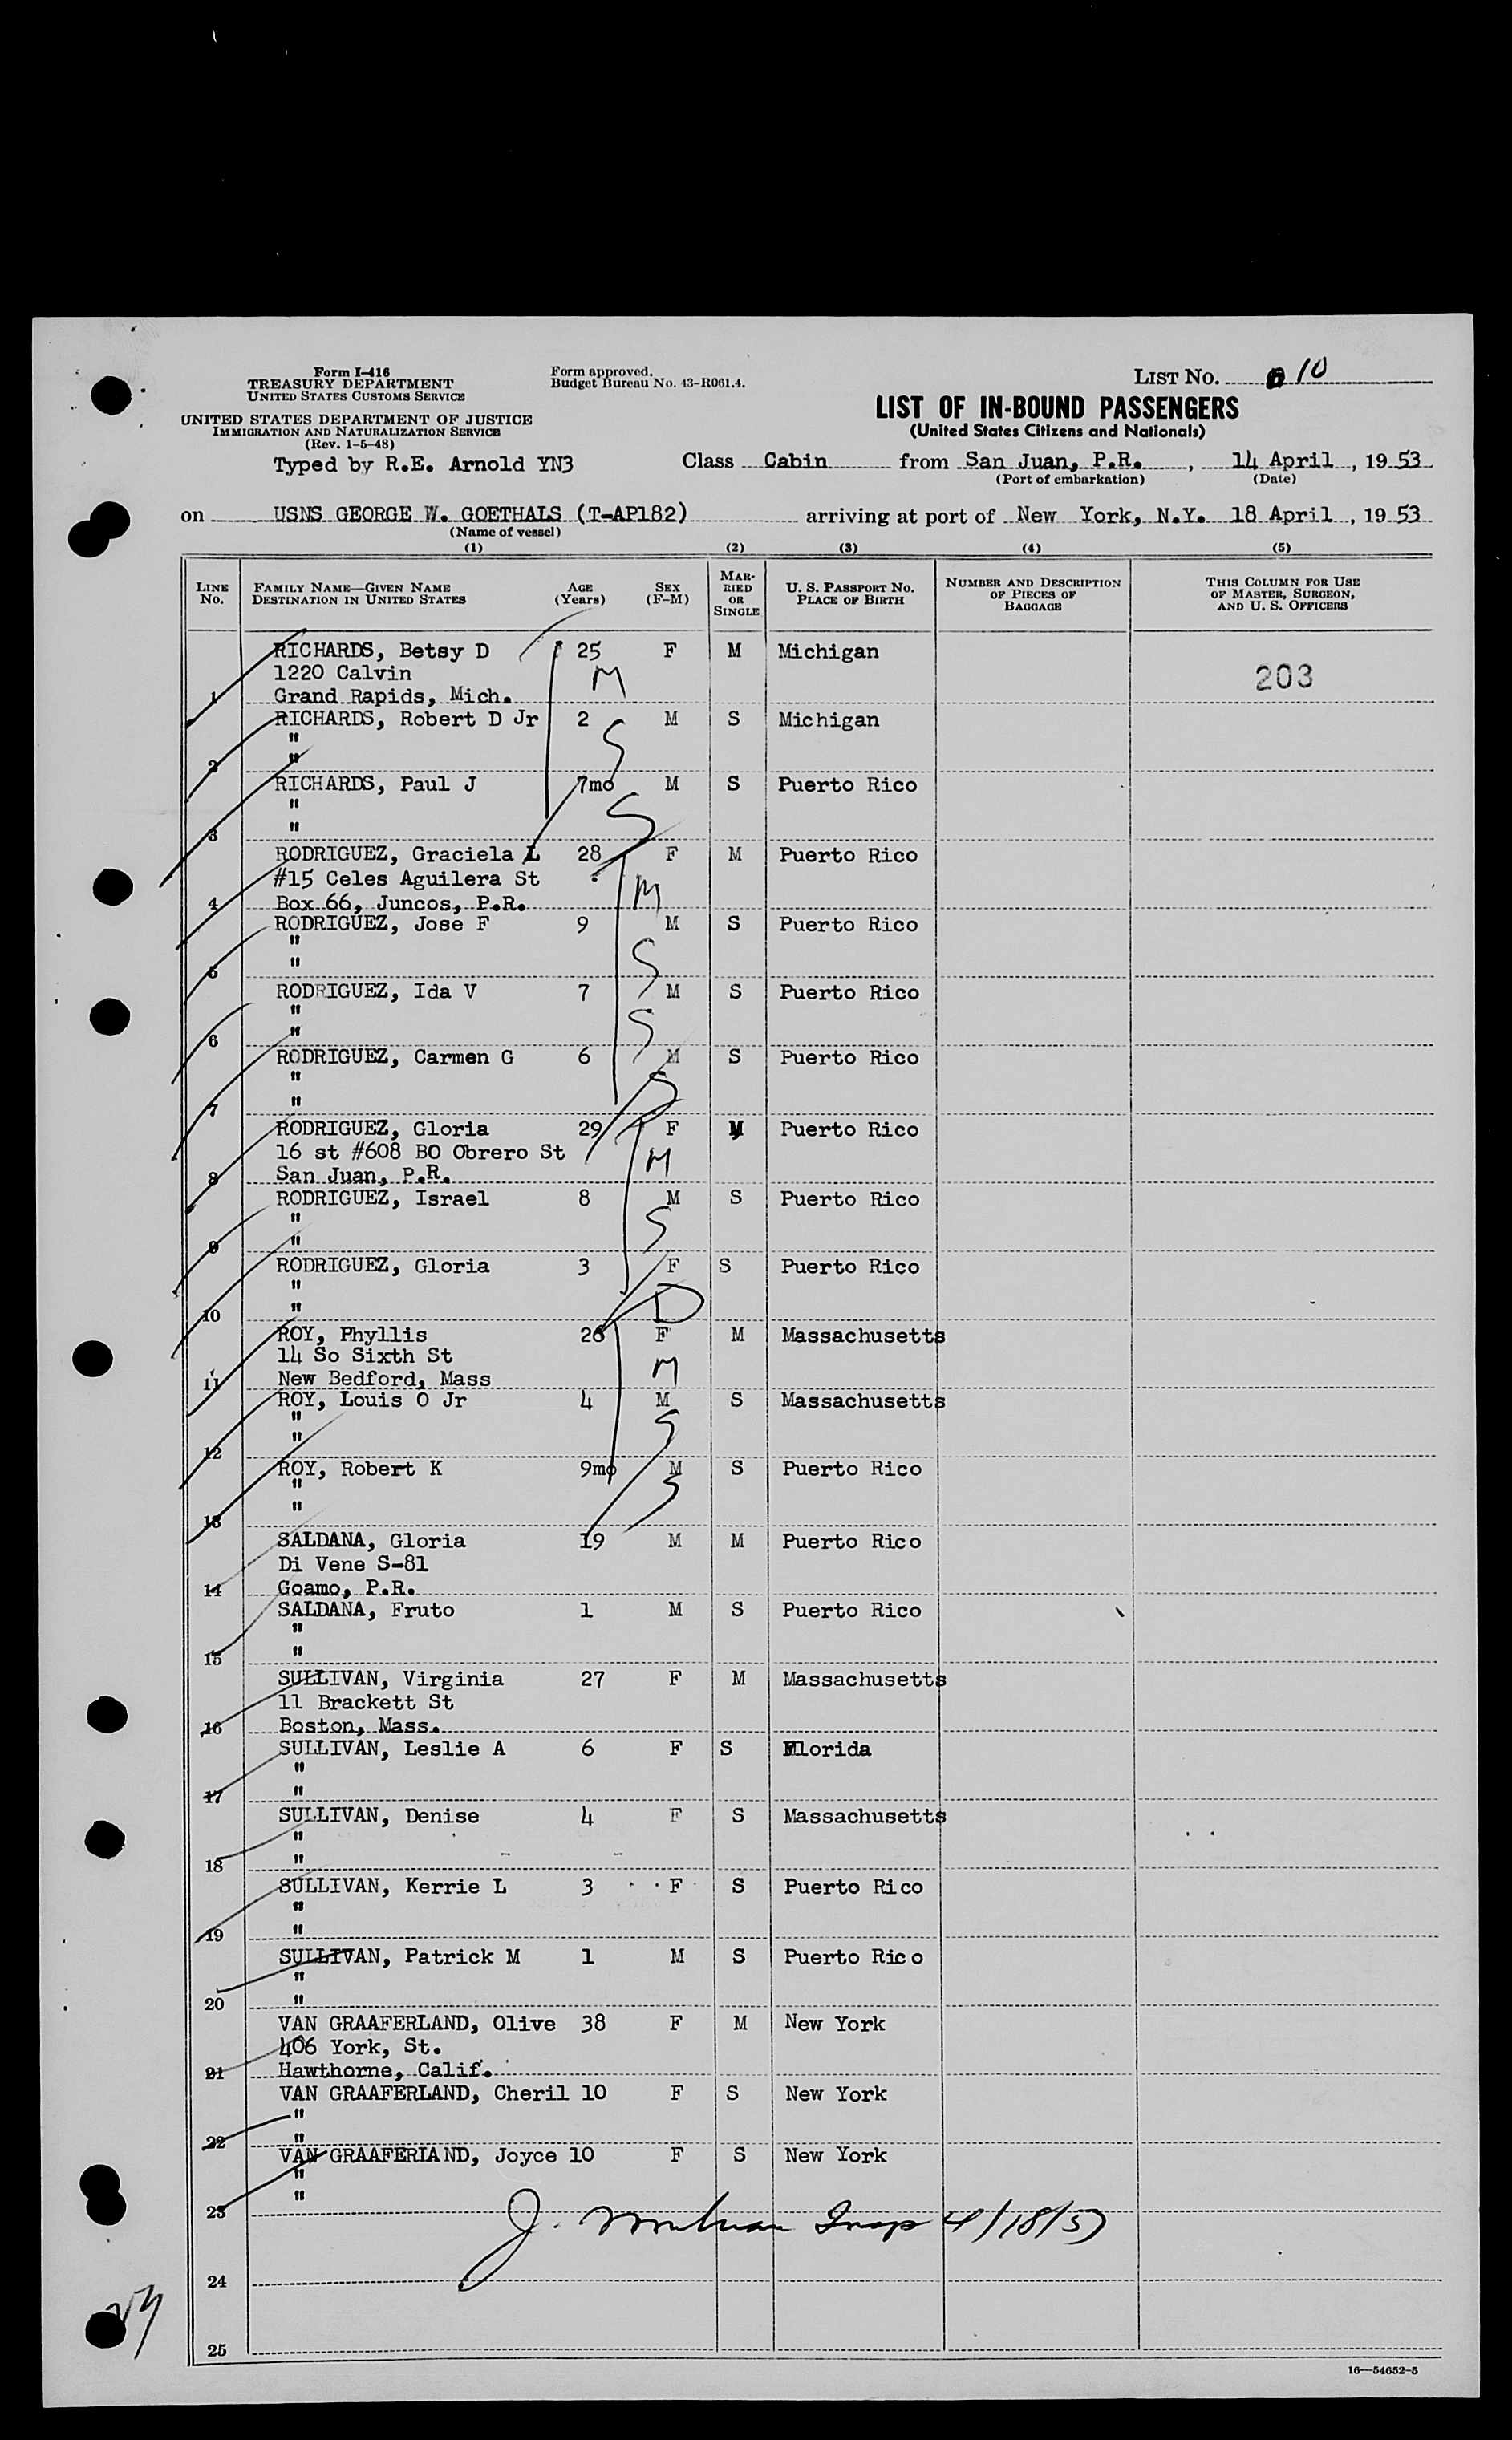 Form I-416
TREASURY DEPARTMENT
UNITED STATES CUSTOMS SERVICE
UNITED STATES DEPARTMENT OF JUSTICE
IMMIGRATION AND NATURALIZATION SERVICE
(Rev. 1-5-48)
Typed by R.E. Arnold YN3
Form approved.
Budget Bureau No. 43-R061.4.
LIST NO. 10
LIST OF IN-BOUND PASSENGERS
(United States Citizens and Nationals)
Class Cabin from San Juan, P.R., 14 April, 1953
(Port of embarkation) (Date)
on USNS GEORGE W. GOETHALS (T-AP182) arriving at port of New York, N.Y. 18 April, 1953
(Name of vessel)
(1) (2) (3) (4) (5)
LINE NO. FAMILY NAME—GIVEN NAME DESTINATION IN UNITED STATES AGE (Years) SEX (F-M) MARRIED OR SINGLE U. S. PASSPORT NO. PLACE OF BIRTH NUMBER AND DESCRIPTION OF PIECES OF BAGGAGE THIS COLUMN FOR USE OF MASTER, SURGEON, AND U. S. OFFICERS
RICHARDS, Betsy D 25 F M Michigan
1220 Calvin M 203
1 Grand Rapids, Mich.
RICHARDS, Robert D Jr 2 M S Michigan
" S
2 "
RICHARDS, Paul J 7mo M S Puerto Rico
" S
3 "
RODRIGUEZ, Graciela L 28 F M Puerto Rico
#15 Celes Aguilera St M
4 Box 66, Juncos, P.R.
RODRIGUEZ, Jose F 9 M S Puerto Rico
" S
5 "
RODRIGUEZ, Ida V 7 M S Puerto Rico
" S
6 "
RODRIGUEZ, Carmen G 6 M S Puerto Rico
" S
7 "
RODRIGUEZ, Gloria 29 F M Puerto Rico
16 st #608 BO Obrero St M
8 San Juan, P.R.
RODRIGUEZ, Israel 8 M S Puerto Rico
" S
9 "
RODRIGUEZ, Gloria 3 F S Puerto Rico
"
10 "
ROY, Phyllis 26 F M Massachusetts
14 So Sixth St M
11 New Bedford, Mass
ROY, Louis O Jr 4 M S Massachusetts
" S
12 "
ROY, Robert K 9mo M S Puerto Rico
" S
13 "
SALDANA, Gloria 19 M M Puerto Rico
Di Vene S-81
14 Goamo, P.R.
SALDANA, Fruto 1 M S Puerto Rico
"
15 "
SULLIVAN, Virginia 27 F M Massachusetts
11 Brackett St
16 Boston, Mass.
SULLIVAN, Leslie A 6 F S Florida
"
17 "
SULLIVAN, Denise 4 F S Massachusetts
"
18 "
SULLIVAN, Kerrie L 3 F S Puerto Rico
"
19 "
SULLIVAN, Patrick M 1 M S Puerto Rico
"
20 "
VAN GRAAFERLAND, Olive 38 F M New York
406 York, St.
21 Hawthorne, Calif.
VAN GRAAFERLAND, Cheril 10 F S New York
"
22 "
VAN GRAAFERLAND, Joyce 10 F S New York
"
23 "
J. Insp 4/18/53
24
25
16—54652-5